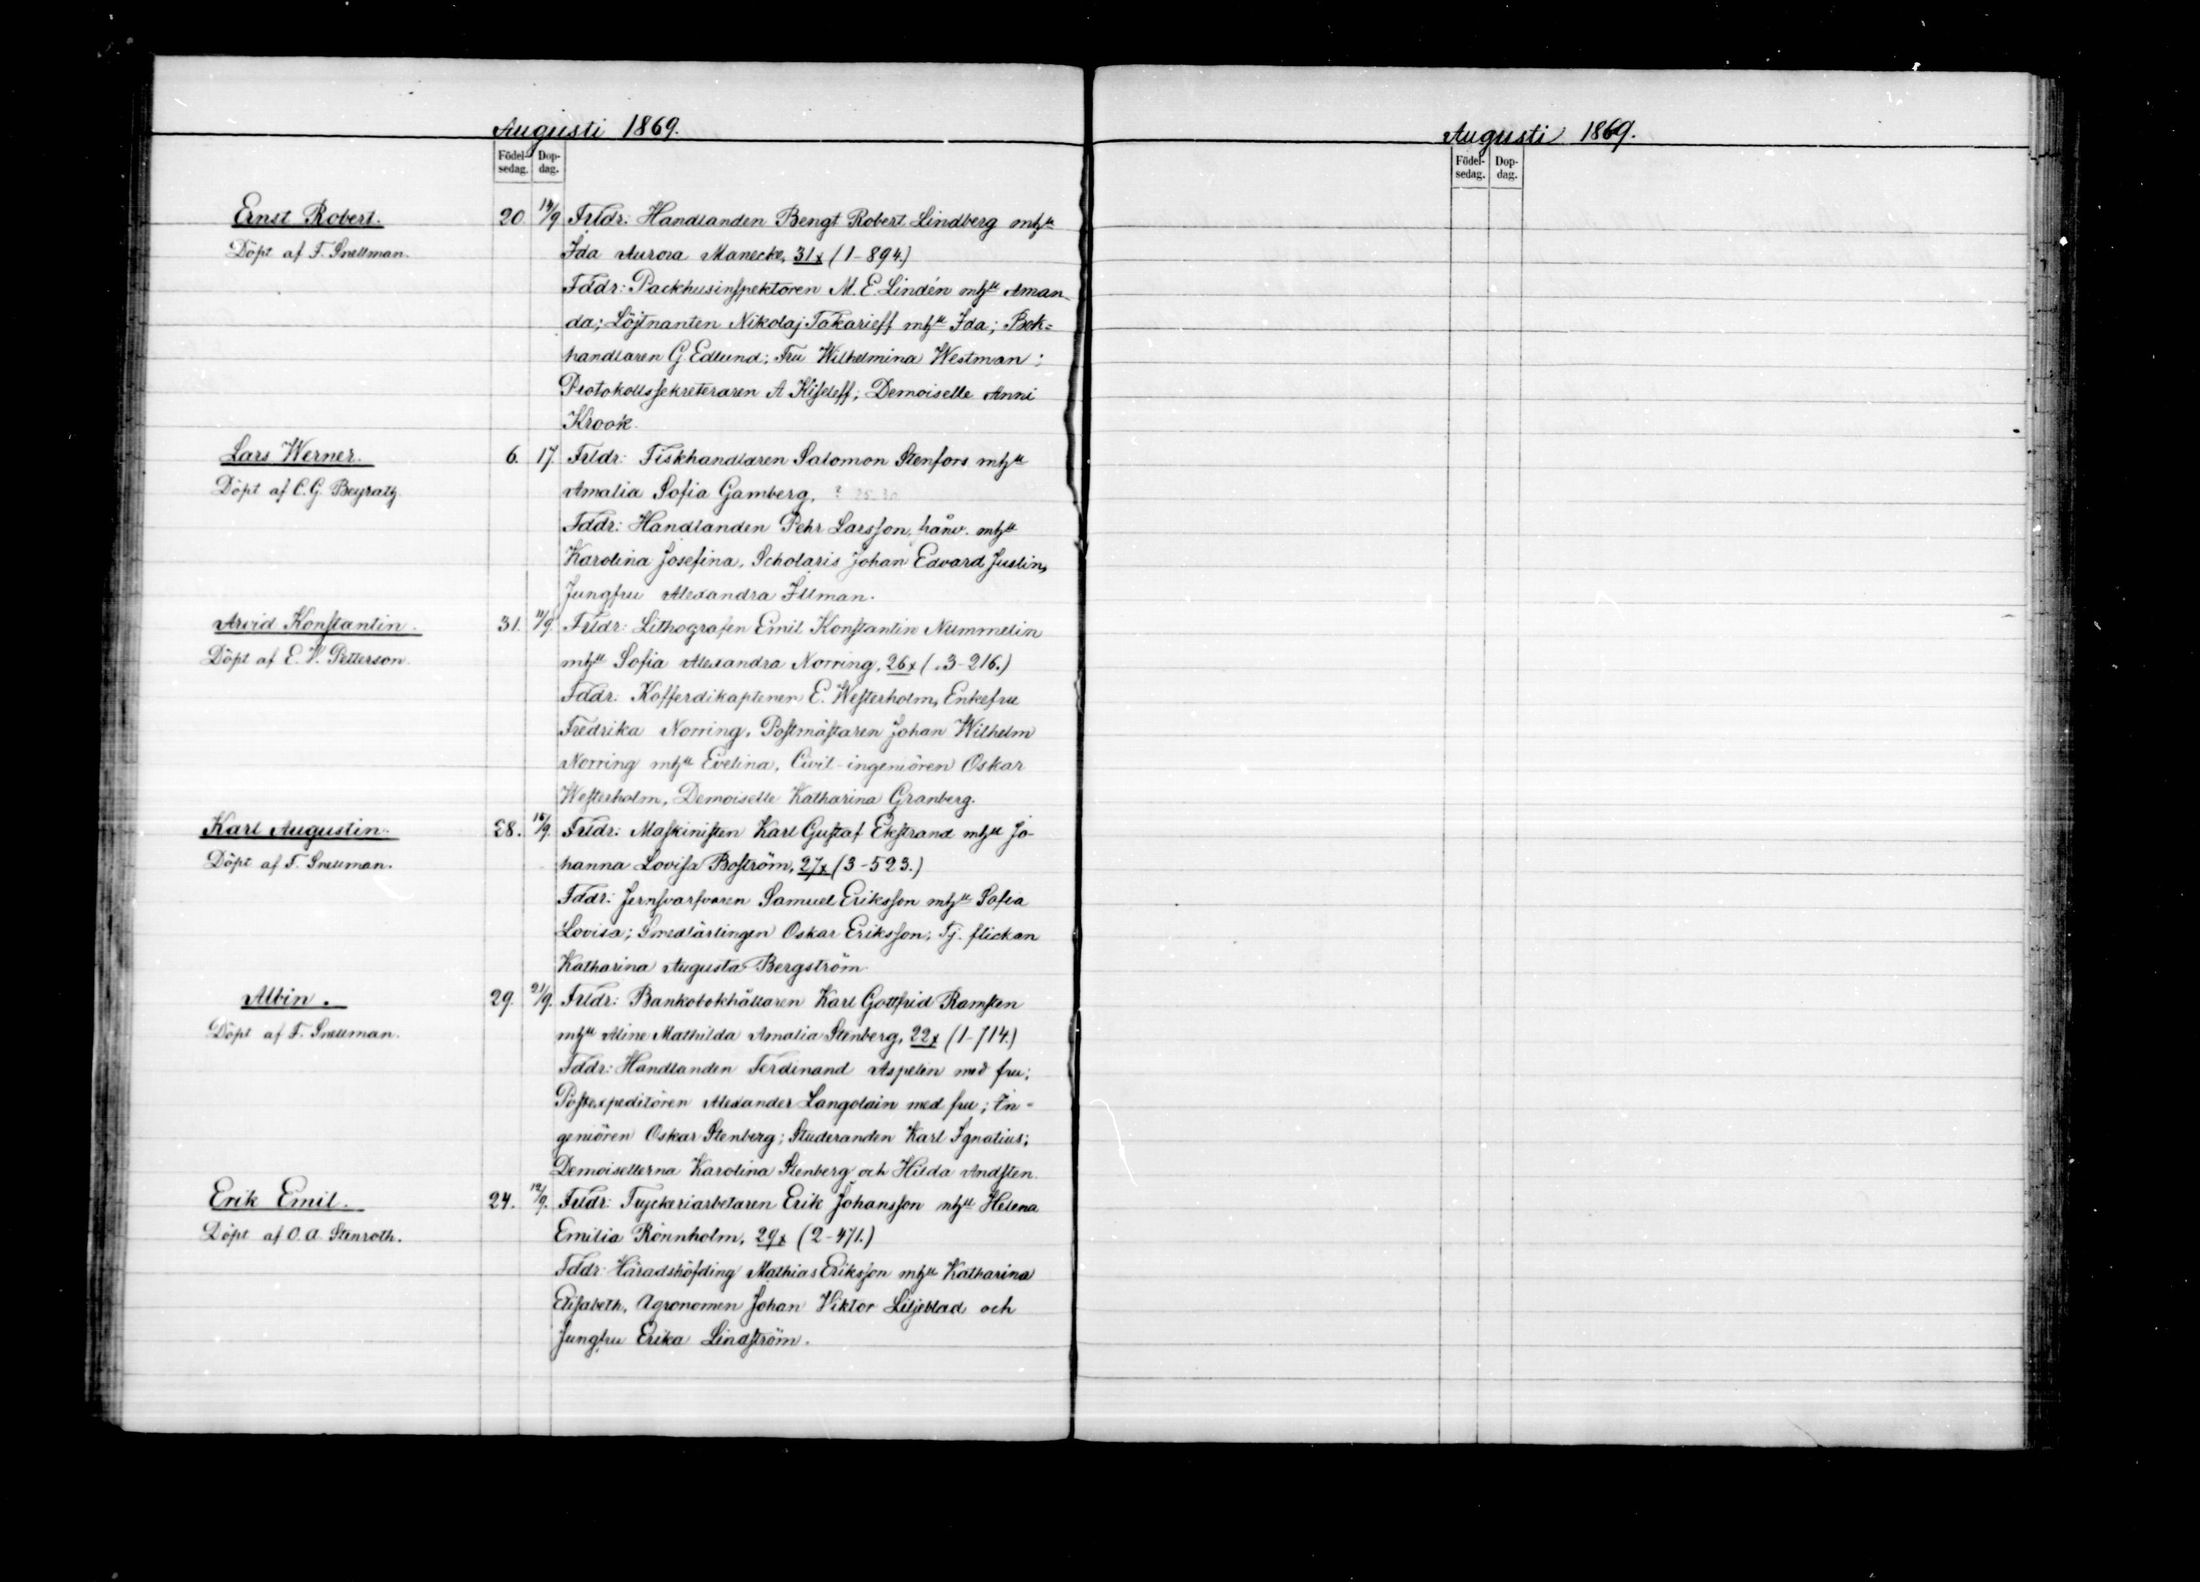 Augusti 1869.
Födel-sedag. Dop-dag.
Ernst Robert. 20. 14/9 Frldr: Handlanden Bengt Robert Lindberg mh
Döpt af F. Snellman. Ida Aurora Manecke, 31x (1-894.)
Fddr: Packhusinspektoren M. E. Lindén mh Aman
da; Löjtnanten Nikolaj Takarieff mh Ida; Bok=
handlaren G Edlund; Fru Wilhelmina Westman;
Protokollssekreteraren A Kiseleff; Demoiselle Anni
Krook.
Lars Werner. 6. 17. Frldr: Fiskhandlaren Salomon Stenfors mh
Döpt af C. G. Beyrath. Amalia Sofia Gamberg,
Fddr: Handlanden Pehr Larsson, mh
Karolina Josefina, Scholaris Johan Edvard Juslin,
Jungfru Alexandra Illman.
Arvid Konstantin. 31. 11/9 Frldr: Lithografen Emil Konstantin Nummelin
Döpt af E. V. Petterson. mh Sofia Alexandra Norring, 26x (3-216.)
Fddr: Kofferdikaptenen E. Westerholm, Enkefru
Fredrika Norring, Postmästaren Johan Wilhelm
Norring mh Evelina, Civil-ingeniören Oskar
Westerholm, Demoiselle Katharina Granberg.
Karl Augustin. 28. 16/9. Frldr: Maskinisten Karl Gustaf Ekstrand mh Jo-
Döpt af F. Snellman. hanna Lovisa Boström, 27x (3-523.)
Fddr: Jernsvarfvaren Samuel Eriksson mh Sofia
Lovisa; Smedlärlingen Oskar Eriksson; Tj. flickan
Katharina Augusta Bergström.
Albin. 29. 21/9. Frldr: Bankobokhållaren Karl Gottfrid Ramsten
Döpt af F. Snellman. mh Aline Mathilda Amalia Stenberg, 22x (1-714.)
Fddr: Handlanden Ferdinand Aspelin med fru;
Postexpeditören Alexander Langolain med fru; In-
geniören Oskar Stenberg; Studeranden Karl Ignatius;
Demoisellerna Karolina Stenberg och Hilda Andsten.
Erik Emil. 24. 12/9. Frldr: Tryckeriarbetaren Erik Johansson mh Helena
Döpt af O. A. Stenroth. Emilia Rönnholm, 29x (2-471.)
Fddr: Häradshöfding Mathias Eriksson mh Katharina
Elisabeth, Agronomen Johan Viktor Liljeblad och
Jungfru Erika Lindström.
Augusti 1869.
Födel-sedag. Dop-dag.